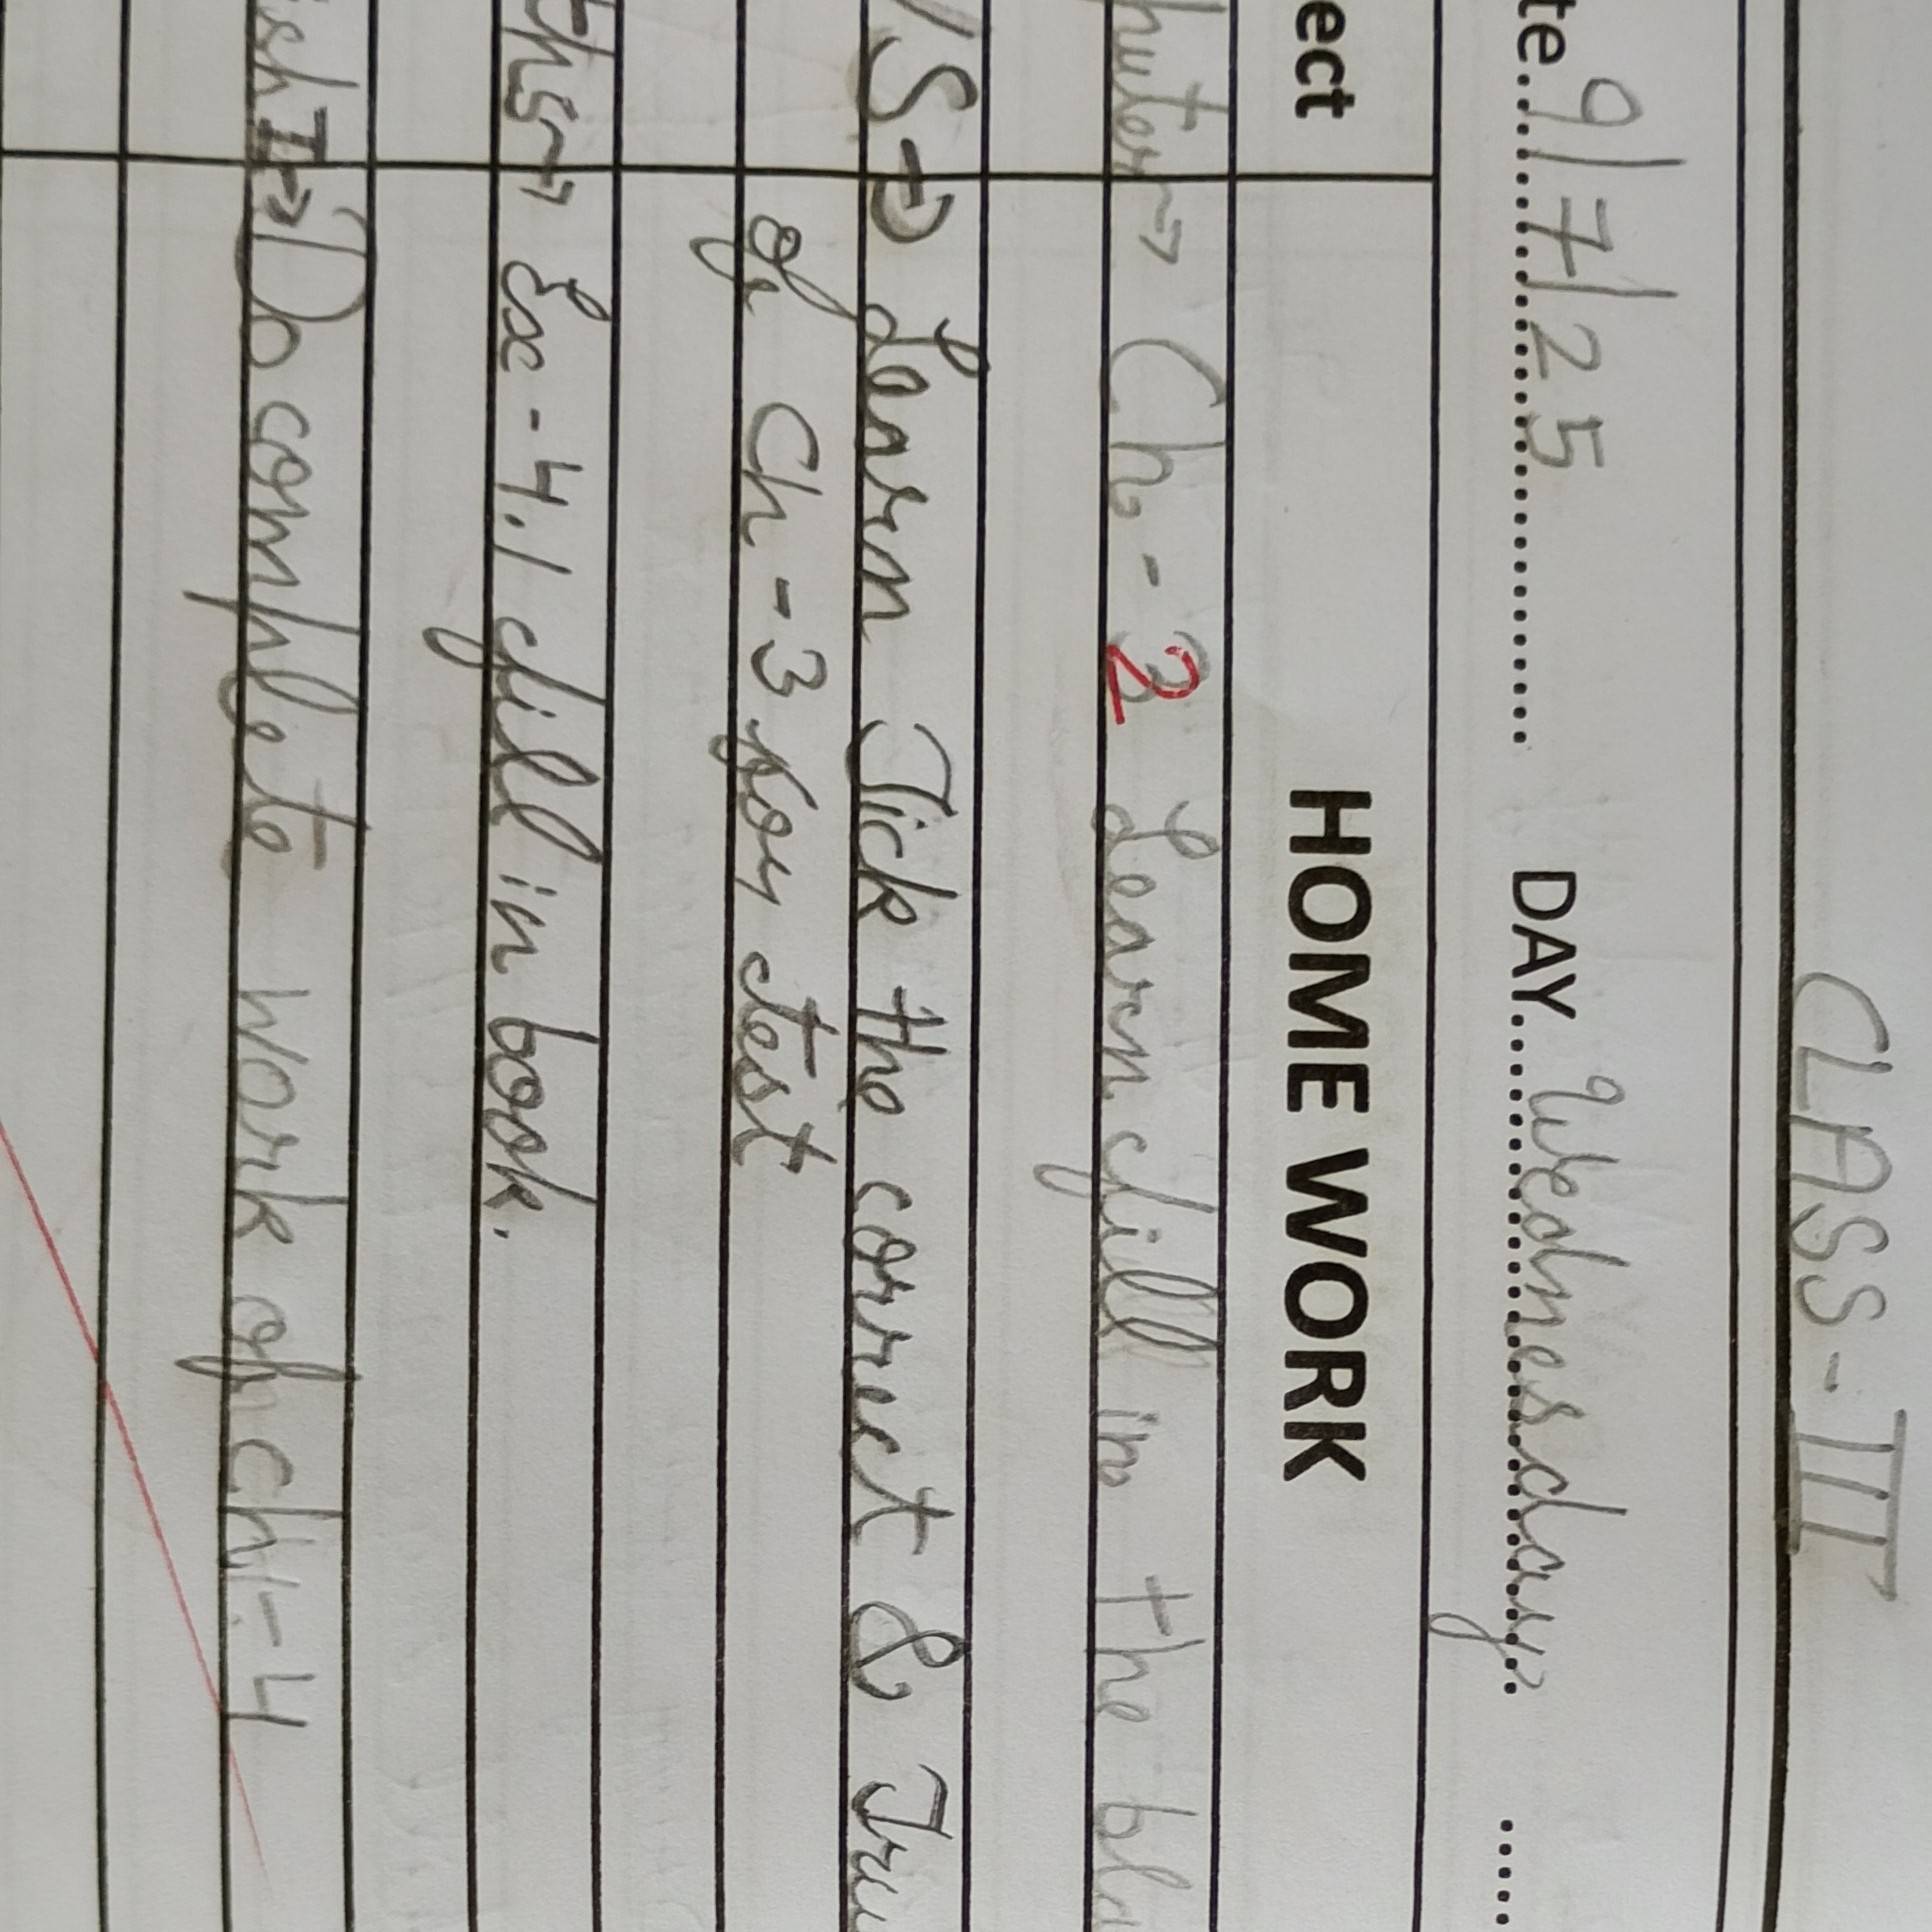 CLASS-III
te..9/7/25.......... DAY...Wednesday.. .....
ect HOME WORK
puter→ Ch.-2 Learn fill in the bla
/S→ Learn Tick the correct & Tru
of Ch-3 for test
ths→ Ex-4.1 fill in book.
ish I→ Do complete work of ch-4